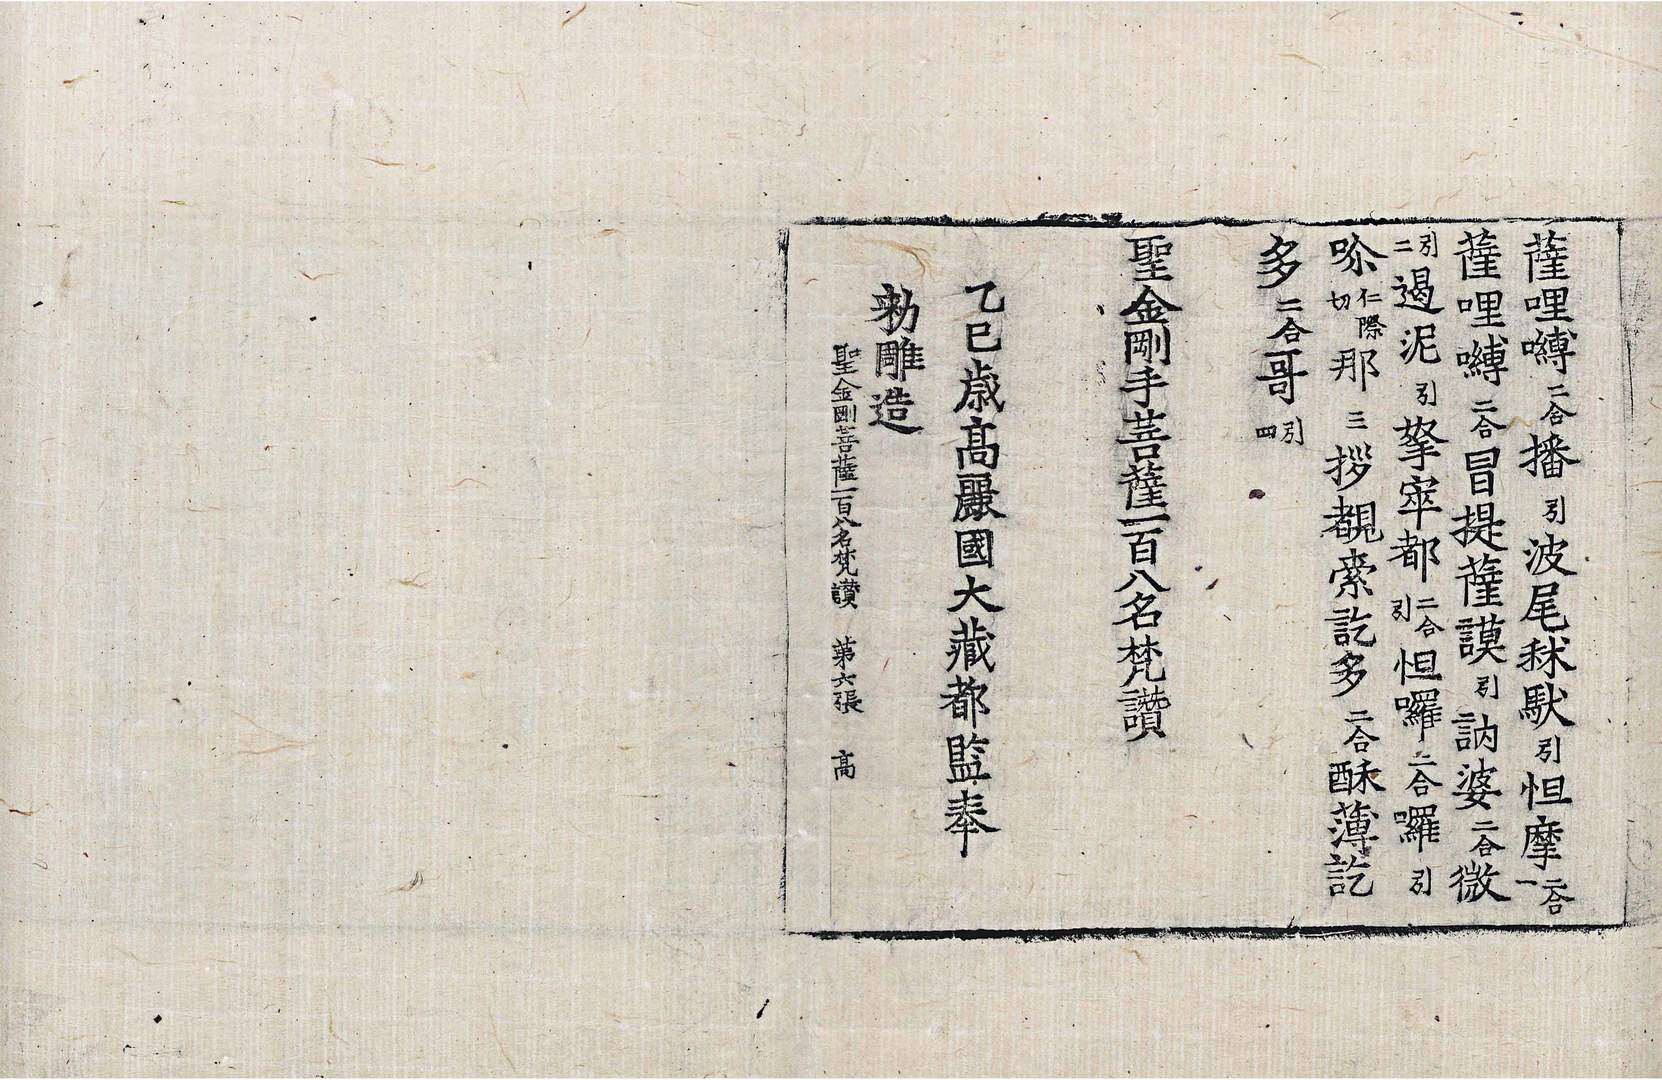 薩哩嚩二合播引波尾秝馱引怛摩二合一
薩哩嚩二合冒提薩謨引訥婆二合微
引二遏泥引拏窣都二合引怛囉二合囉引
唋仁際切那三拶覩索訖多二合酥薄訖
多二合哥引四
聖金剛手菩薩一百八名梵讚
乙巳歳高麗國大藏都監奉
勅雕造
聖金剛菩薩一百八名梵讃 第六張 高